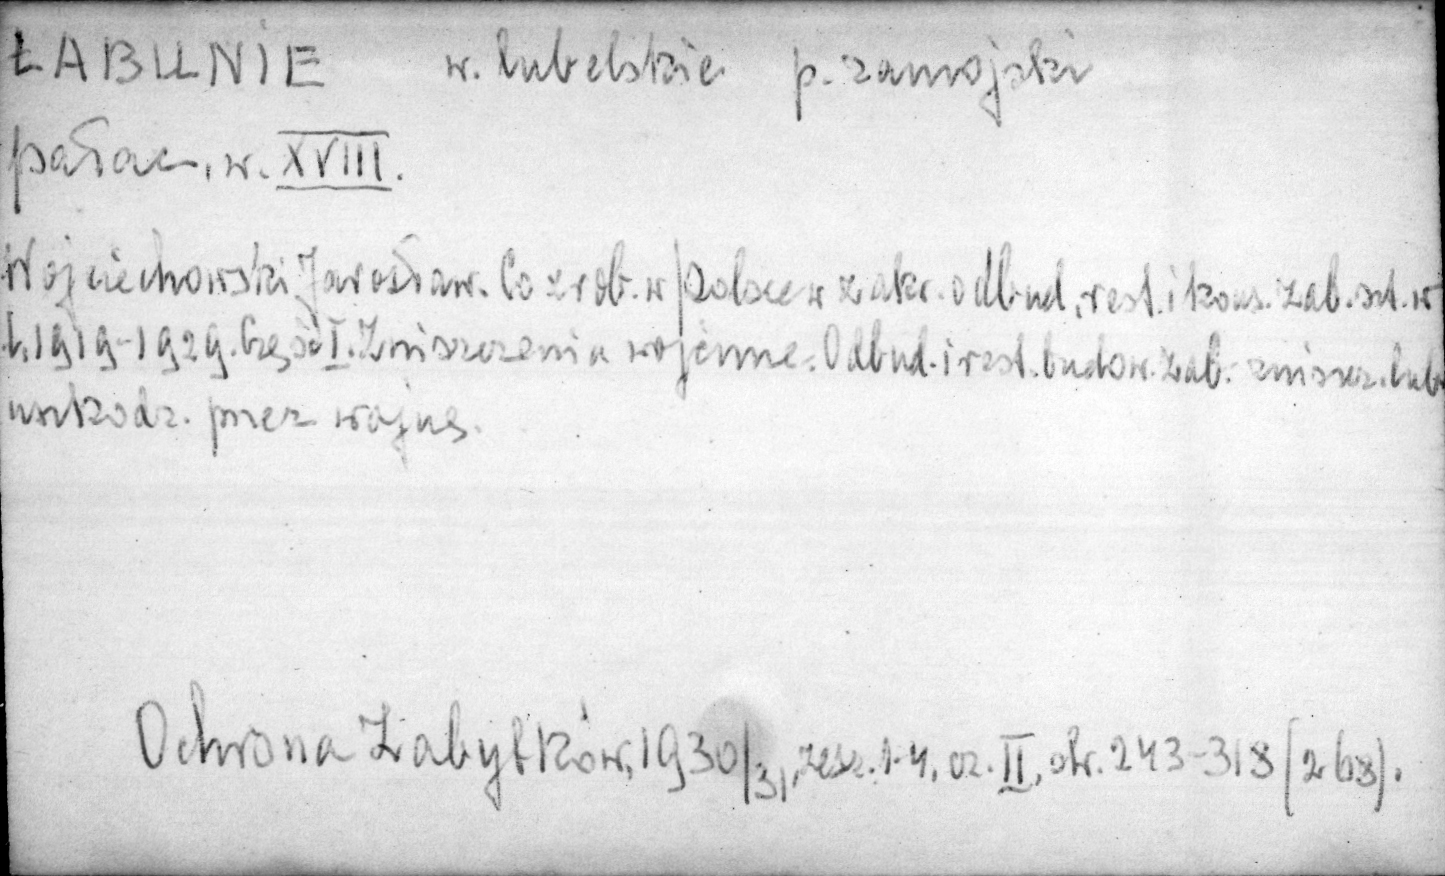 ŁABUNIE w. lubelskie p. zamojski
pałac, w. XVIII.
Wojciechowski Jarosław. Co zrob. w Polsce w zakr. odbud, rest. i kons. zab. szt. w
l. 1919-1929. Część I. Zniszczenia wojenne. Odbud. i rest. budow. zab. zniszcz. lub
uszkodz. przez wojnę.
Ochrona Zabytków, 1930/31, zesz. 1-4, cz. II, str. 243-318 (268).